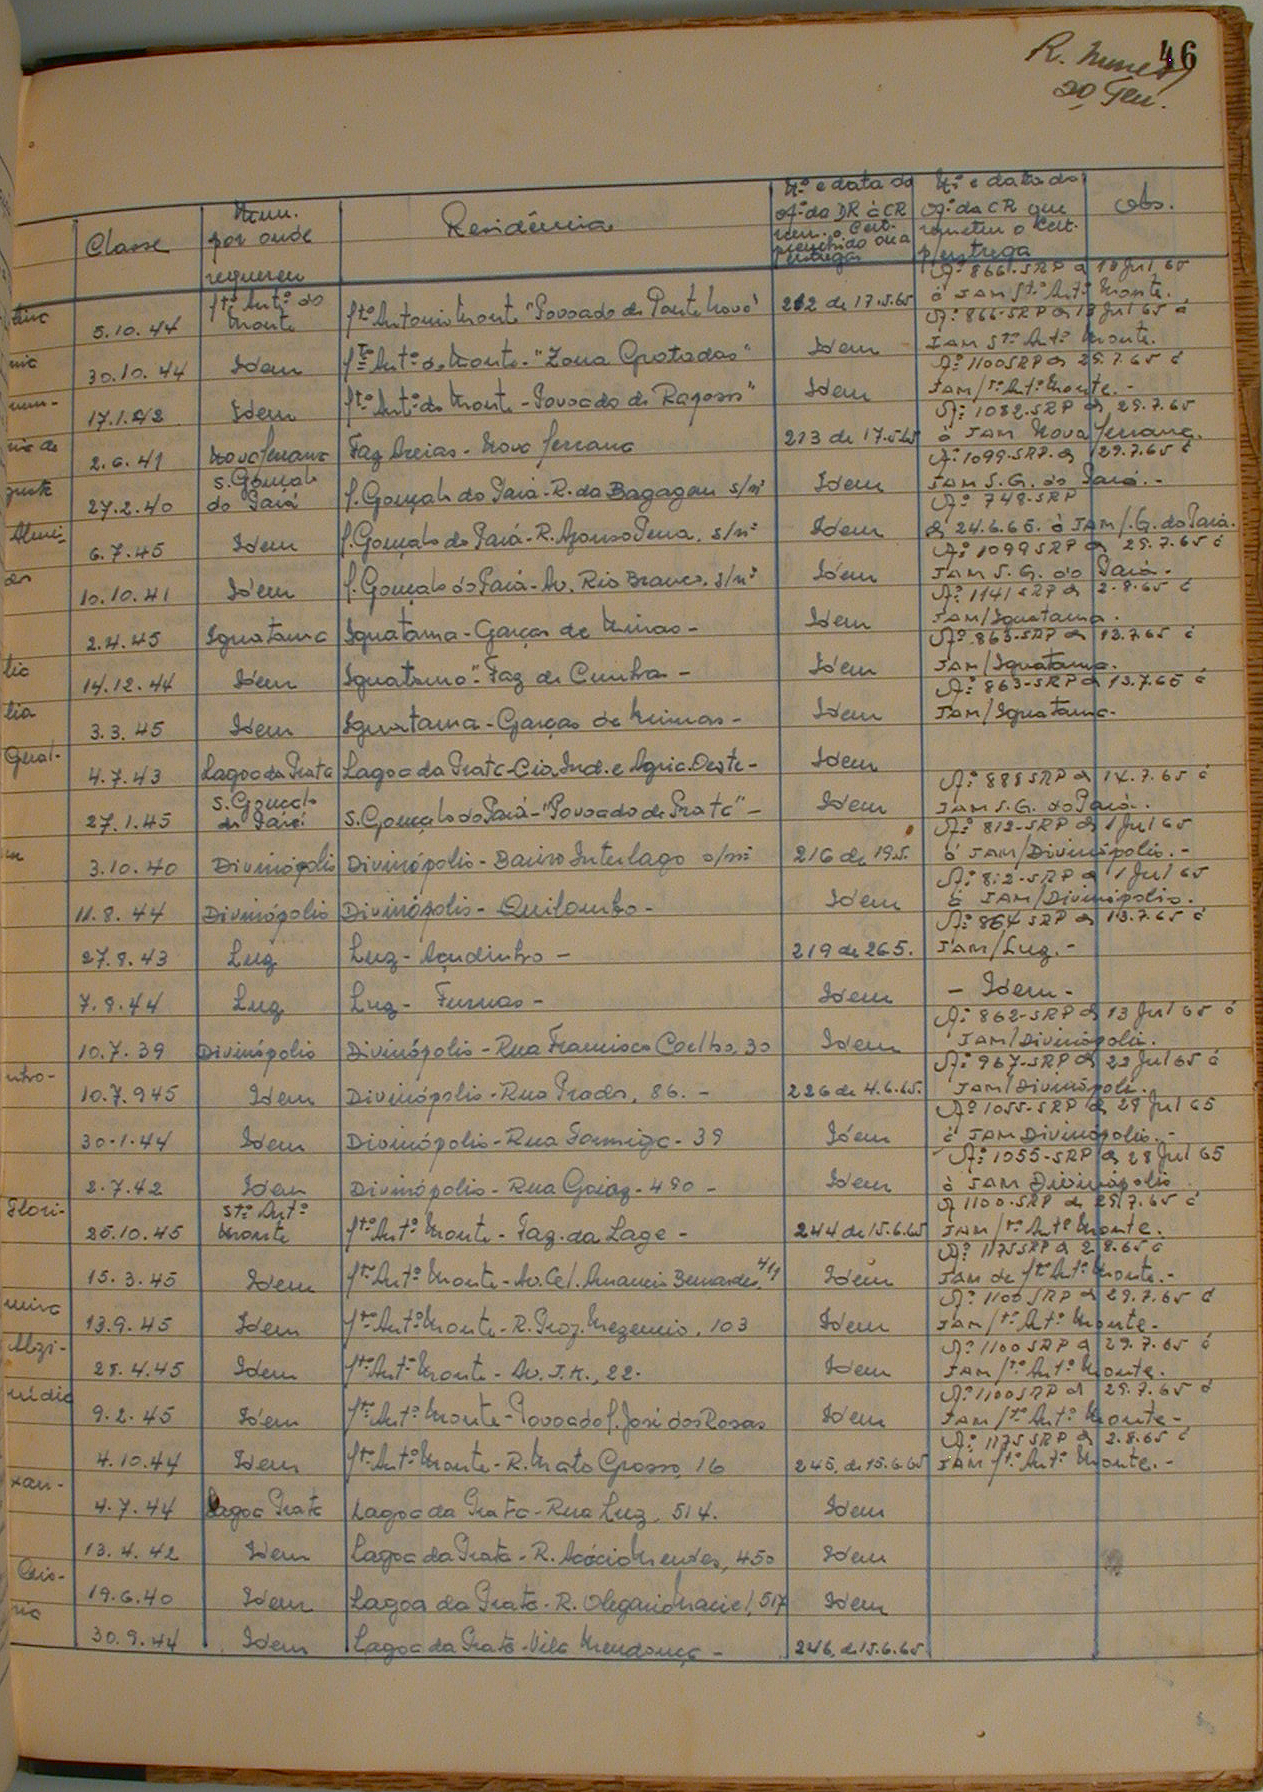 46
R. Nunes
20 Ten.
Classe
Mun. por onde requereu
Residência
Nº e data do Of. da DR à CR rem. o Cert. preenchido ou a entregar
Nº e data do Of. da CR que remeteu o Cert. p/entrega
Obs.
5.10.44 Stº Antº do Monte Stº Antonio Monte "Povoado de Ponte Nova" 212 de 17.5.65 Of. 866-SRP de 13 Jul 65 à JAM Stº Antº Monte.
30.10.44 Idem Stº Antº do Monte - "Zona Grotadas" Idem Of. 866-SRP de 13 Jul 65 à JAM Stº Antº Monte.
17.1.43 Idem Stº Antº do Monte - Povoado de Raposos" Idem Of. 1100 SRP de 29.7.65 à JAM/Stº Antº Monte.-
2.6.41 Nova Serrana Faz Areias - Nova Serrana 213 de 17.5.65 Of. 1082-SRP de 29.7.65 à JAM Nova Serrana.
27.2.40 S. Gonçalo do Pará S. Gonçalo do Pará - R. da Bagagem s/nº Idem Of. 1099-SRP de 29.7.65 à JAM S.G. do Pará.-
6.7.45 Idem S. Gonçalo do Pará - R. Afonso Pena, s/nº Idem Of. 748-SRP de 24.6.65 à JAM/S.G. do Pará.
10.10.41 Idem S. Gonçalo do Pará - Av. Rio Branco, s/nº Idem Of. 1099 SRP de 29.7.65 à JAM S.G. do Pará-
2.4.45 Iguatama Iguatama - Garças de Minas - Idem Of. 1141 SRP de 2.8.65 à JAM/Iguatama.
14.12.44 Idem Iguatama - Faz de Cunha - Idem Of. 863-SRP de 13.7.65 à JAM/Iguatama.
3.3.45 Idem Iguatama - Garças de Minas - Idem Of. 863-SRP de 13.7.65 à JAM/Iguatama-
4.7.43 Lagoa da Prata Lagoa da Prata - Cia. Ind. e Agric. Oeste - Idem
27.1.45 S. Gonçalo do Pará S. Gonçalo do Pará - "Povoado de Prata" - Idem Of. 888 SRP de 14.7.65 à JAM S.G. do Pará.
3.10.40 Divinópolis Divinópolis - Bairro Interlago s/nº 216 de 19.5. Of. 812-SRP de 1 Jul 65 à JAM/Divinópolis.-
11.8.44 Divinópolis Divinópolis - Quilombo - Idem Of. 812-SRP de 1 Jul 65 à JAM/Divinópolis.
27.8.43 Luz Luz - Açudinho - 219 de 26.5. Of. 864 SRP de 13.7.65 à JAM/Luz.-
7.8.44 Luz Luz - Furnas - Idem - Idem -
10.7.39 Divinópolis Divinópolis - Rua Francisco Coelho, 30 Idem Of. 862-SRP de 13 Jul 65 à JAM/Divinópolis.
10.7.945 Idem Divinópolis - Rua Prados, 86. - 226 de 4.6.65. Of. 967-SRP de 22 Jul 65 à JAM/Divinópolis.
30-1-44 Idem Divinópolis - Rua Formiga - 39 Idem Of. 1055-SRP de 29 Jul 65 à JAM Divinópolis.-
2.7.42 Idem Divinópolis - Rua Goiaz - 490 - Idem Of. 1055-SRP de 28 Jul 65 à JAM Divinópolis
25.10.45 Stº Antº Monte Stº Antº Monte - Faz. da Lage - 244 de 15.6.65 Of 1100-SRP de 29.7.65 à JAM/Stº Antº Monte.
15.3.45 Idem Stº Antº Monte - Av. Cel. Amancio Bernardes, 411 Idem Of. 1175 SRP de 2.8.65 à JAM de Stº Antº Monte.-
13.9.45 Idem Stº Antº Monte - R. Prof. Mezencio, 103 Idem Of. 1100 SRP de 29.7.65 à JAM/Stº Antº Monte-
28.4.45 Idem Stº Antº Monte - Av. J.K., 22. Idem Of. 1100 SRP de 29.7.65 à JAM/Stº Antº Monte.
9.2.45 Idem Stº Antº Monte - Povoado S. José dos Rosas Idem Of. 1100 SRP de 29.7.65 à JAM/Stº Antº Monte-
4.10.44 Idem Stº Antº Monte - R. Mato Grosso, 16 245, de 15.6.65 Of. 1175 SRP de 2.8.65 à JAM/Stº Antº Monte.-
4.7.44 Lagoa Prata Lagoa da Prata - Rua Luz, 514. Idem
13.4.42 Idem Lagoa da Prata - R. Acácio Mendes, 450 Idem
19.6.40 Idem Lagoa da Prata - R. Olegario Maciel, 517 Idem
30.9.44 Idem Lagoa da Prata - Vila Mendonça - 246, de 15.6.65